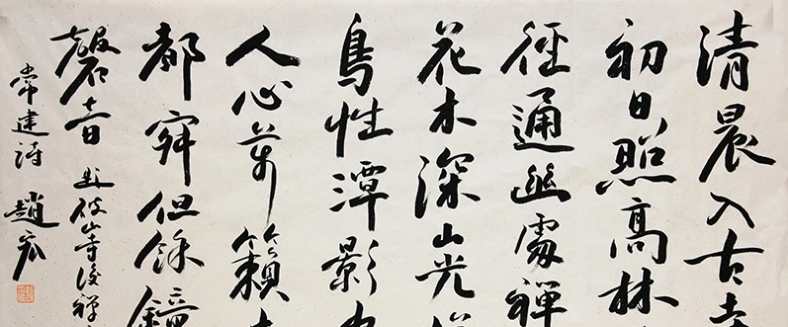 清晨入古寺
初日照高林
徑通幽處禪
花木深山光
鳥性潭影空
人心萬籟
都寂但餘鐘
磬音
題破山寺後禪
常建詩 趙宏